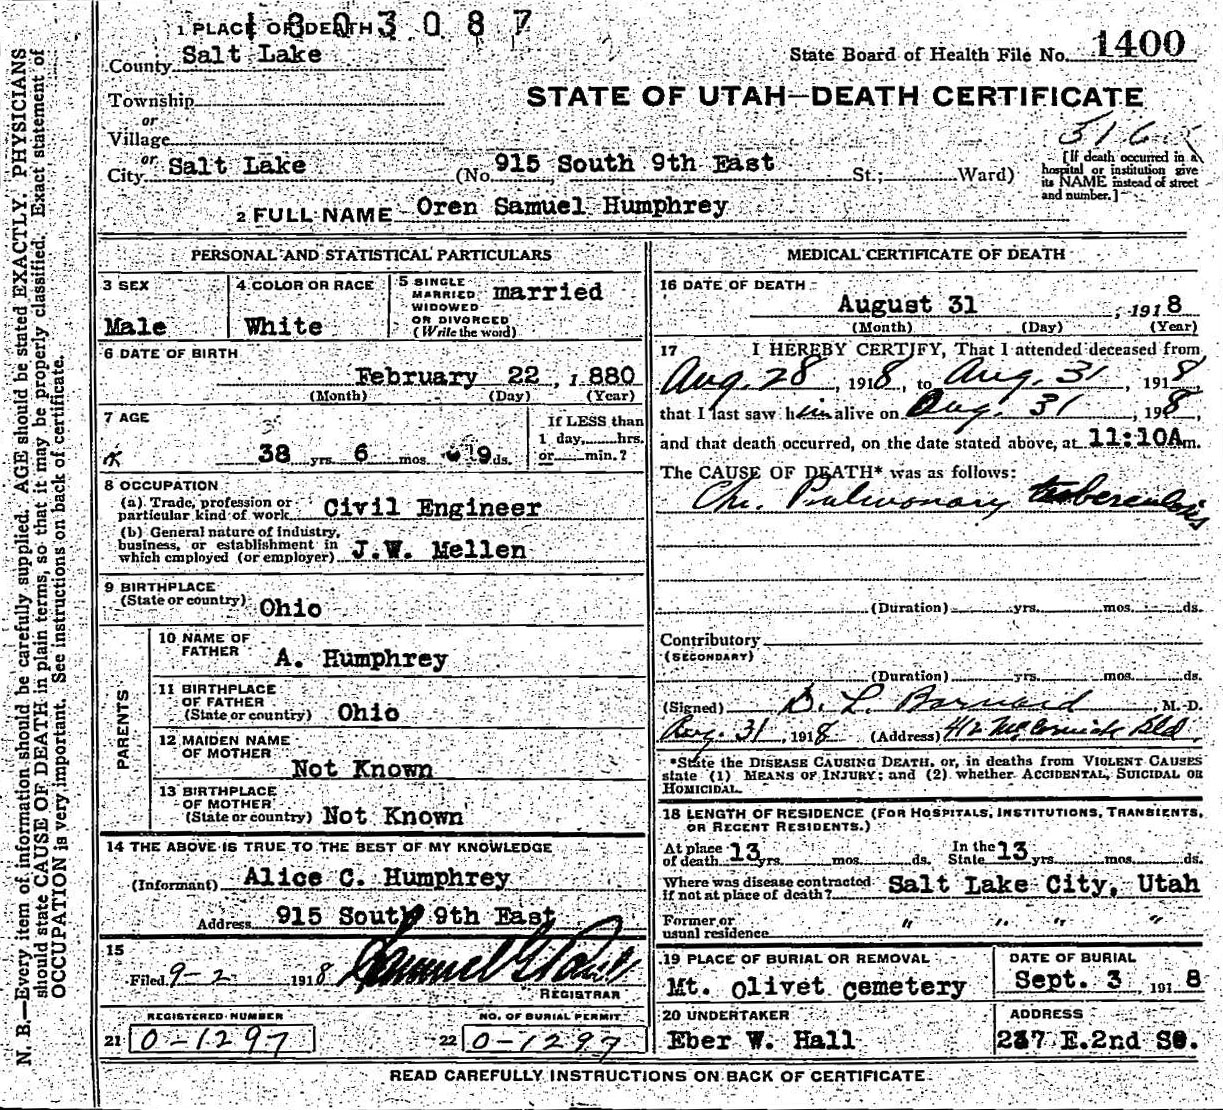 1 PLACE OF DEATH 1 8 0 3 0 8 7
County Salt Lake
State Board of Health File No. 1400
Township
or
Village
STATE OF UTAH—DEATH CERTIFICATE
316
or
City Salt Lake (No. 915 South 9th East St.; Ward)
[If death occurred in a
hospital or institution give
its NAME instead of street
and number.]
2 FULL NAME Oren Samuel Humphrey
PERSONAL AND STATISTICAL PARTICULARS
3 SEX
Male
4 COLOR OR RACE
White
5 SINGLE
MARRIED
WIDOWED
OR DIVORCED
(Write the word)
married
6 DATE OF BIRTH
February 22, 1880
(Month) (Day) (Year)
7 AGE
38 yrs. 6 mos. 9 ds.
If LESS than
1 day, hrs.
or min.?
8 OCCUPATION
(a) Trade, profession or
particular kind of work Civil Engineer
(b) General nature of industry,
business, or establishment in
which employed (or employer) J.W. Mellen
9 BIRTHPLACE
(State or country) Ohio
PARENTS
10 NAME OF
FATHER A. Humphrey
11 BIRTHPLACE
OF FATHER
(State or country) Ohio
12 MAIDEN NAME
OF MOTHER
Not Known
13 BIRTHPLACE
OF MOTHER
(State or country) Not Known
14 THE ABOVE IS TRUE TO THE BEST OF MY KNOWLEDGE
(Informant) Alice C. Humphrey
Address 915 South 9th East
15
Filed 9-2 1918 Samuel G Paul
REGISTRAR
REGISTERED NUMBER
21 0-1297
NO. OF BURIAL PERMIT
22 0-1297
MEDICAL CERTIFICATE OF DEATH
16 DATE OF DEATH
August 31, 1918
(Month) (Day) (Year)
17 I HEREBY CERTIFY, That I attended deceased from
Aug. 28, 1918, to Aug. 31, 1918,
that I last saw him alive on Aug. 31, 198,
and that death occurred, on the date stated above, at 11:10A m.
The CAUSE OF DEATH* was as follows:
Chr. Pulmonary tuberculosis
(Duration) yrs. mos. ds.
Contributory
(SECONDARY)
(Duration) yrs. mos. ds.
(Signed) D. L. Barnard, M. D.
Aug. 31, 1918 (Address) 412 McCornick Bld.
*State the DISEASE CAUSING DEATH, or, in deaths from VIOLENT CAUSES
state (1) MEANS OF INJURY; and (2) whether ACCIDENTAL, SUICIDAL OR
HOMICIDAL.
18 LENGTH OF RESIDENCE (FOR HOSPITALS, INSTITUTIONS, TRANSIENTS,
OR RECENT RESIDENTS.)
At place
of death 13 yrs. mos. ds. In the
State 13 yrs. mos. ds.
Where was disease contracted
if not at place of death? Salt Lake City, Utah
Former or
usual residence " " " "
19 PLACE OF BURIAL OR REMOVAL
Mt. Olivet Cemetery
DATE OF BURIAL
Sept. 3, 1918
20 UNDERTAKER
Eber W. Hall
ADDRESS
237 E.2nd So.
READ CAREFULLY INSTRUCTIONS ON BACK OF CERTIFICATE.
N. B.—Every item of information should be carefully supplied. AGE should be stated EXACTLY. PHYSICIANS
should state CAUSE OF DEATH in plain terms, so that it may be properly classified. Exact statement of
OCCUPATION is very important. See instructions on back of certificate.